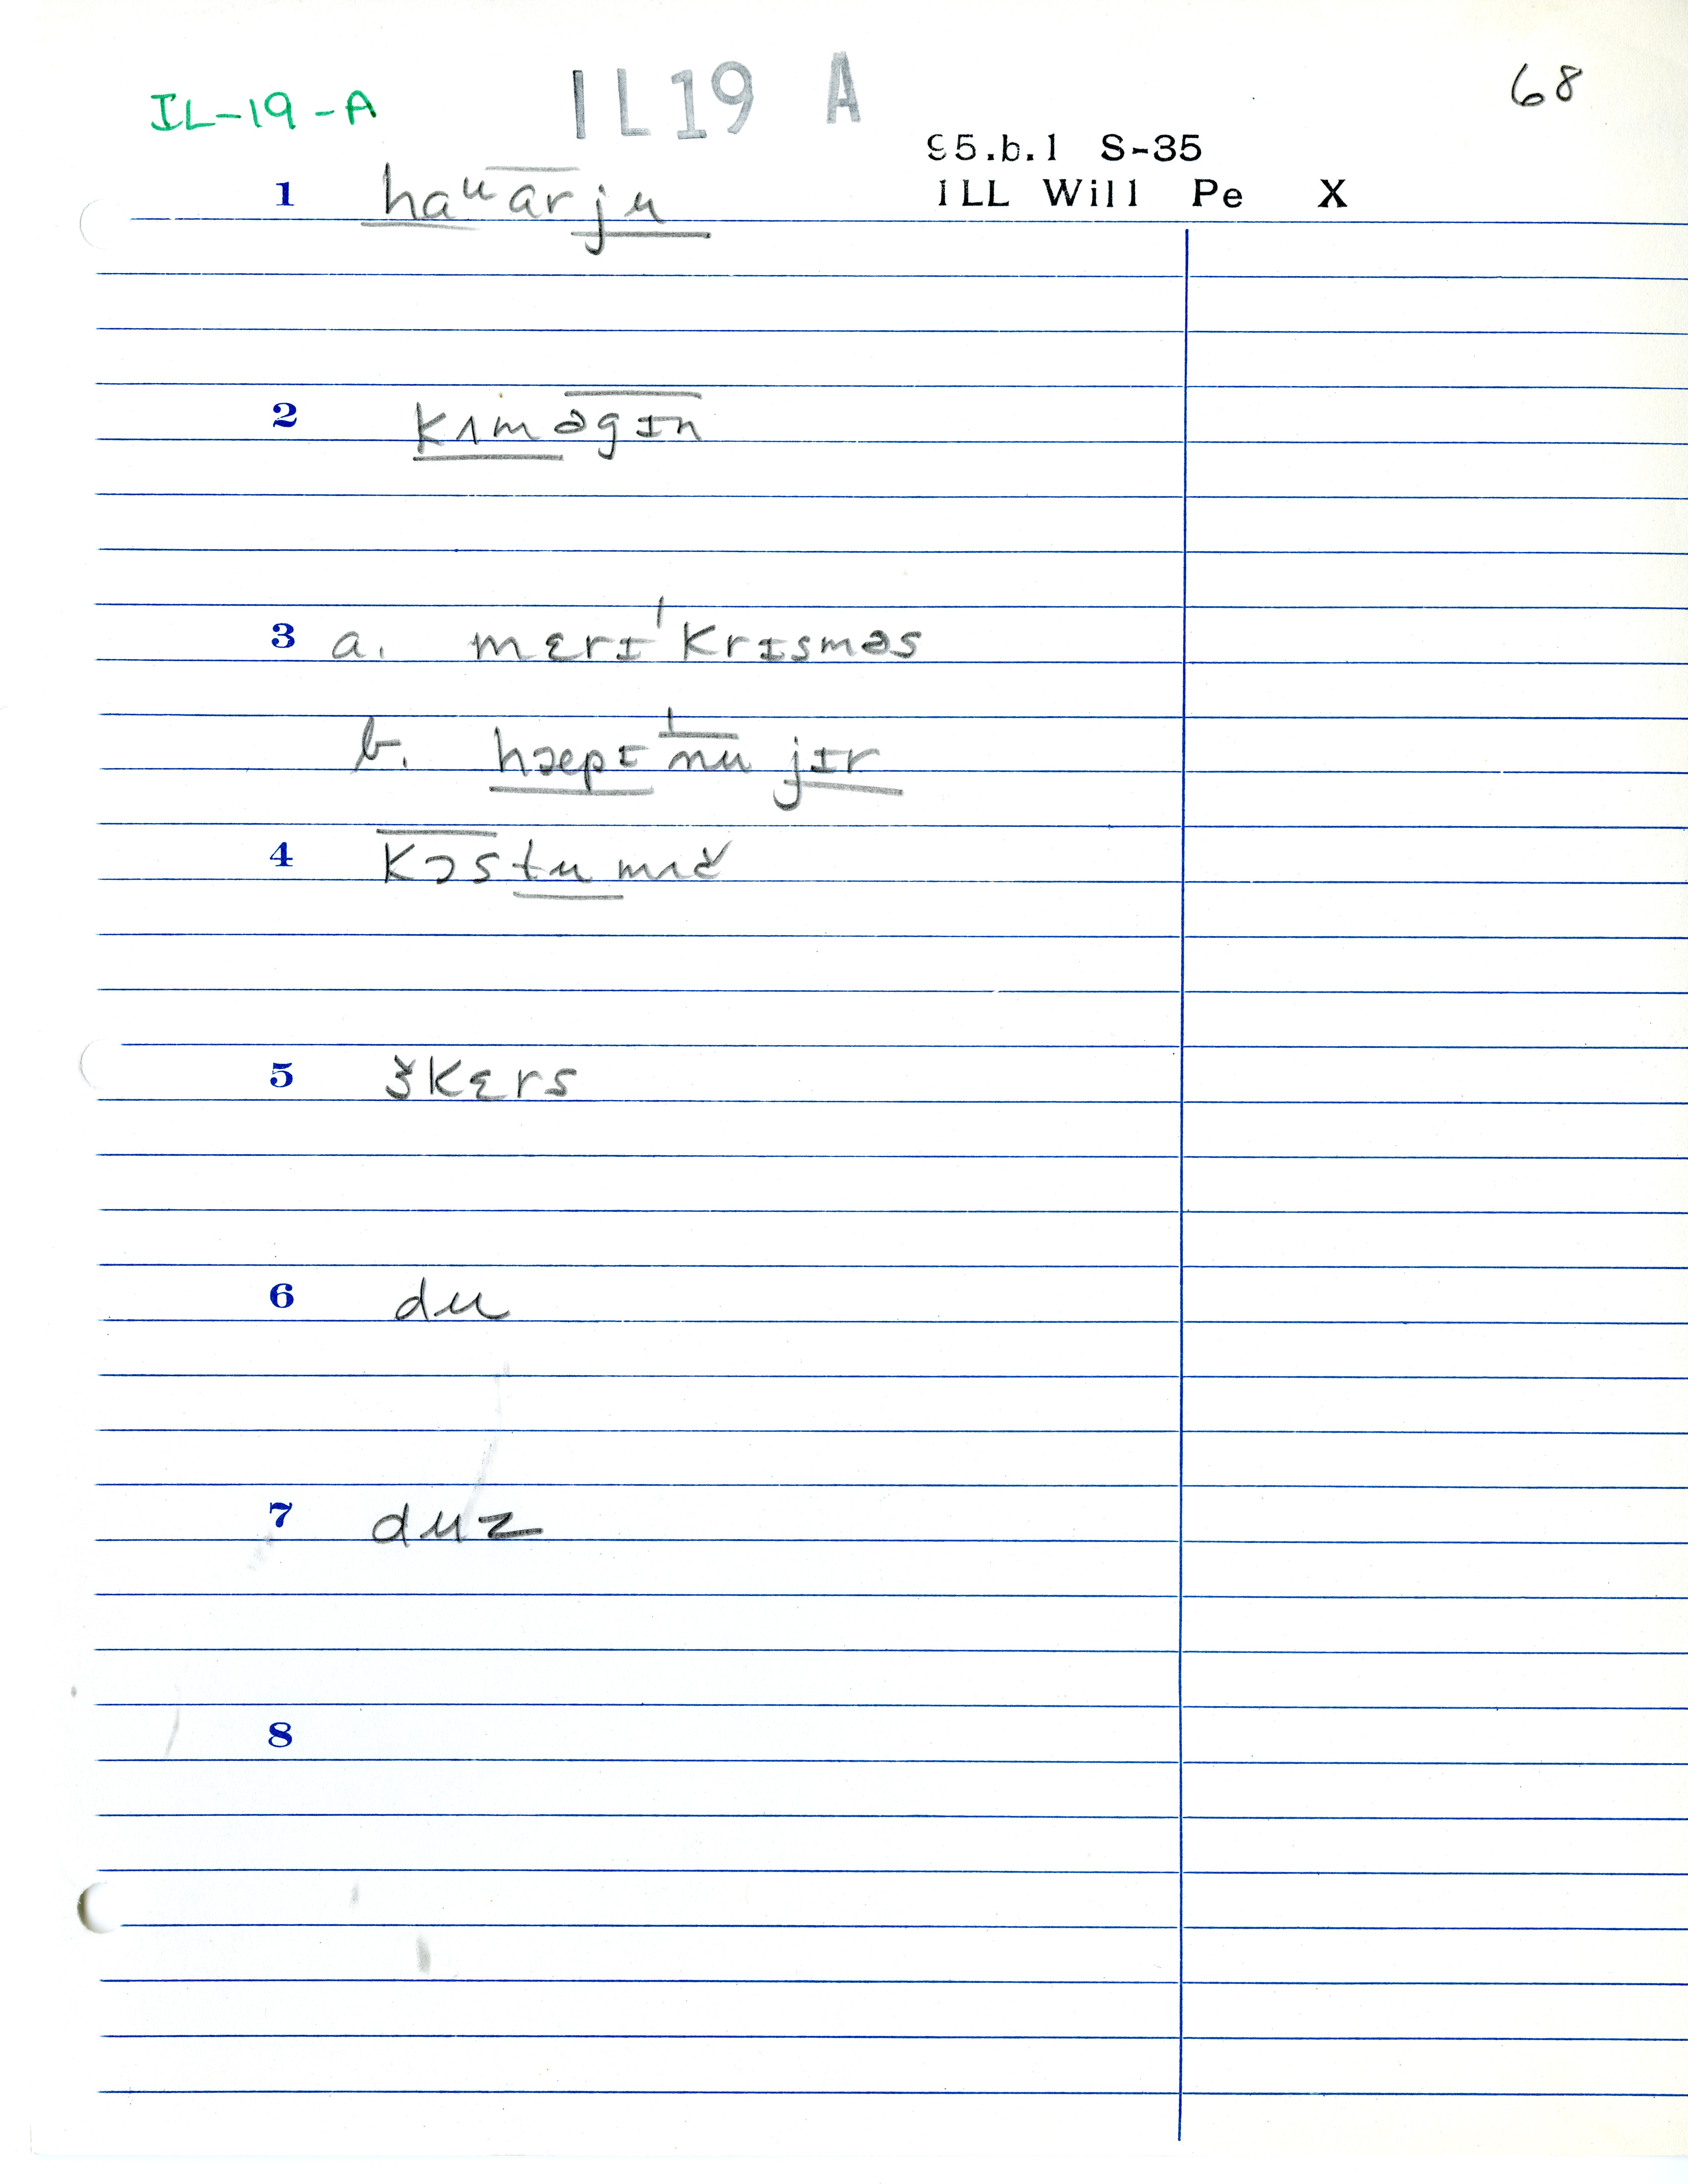 IL-19-A IL19 A 68
95.b.1 S-35
ILL Will Pe X
1 haᵘarju
2 kʌməgɪn
3 a. mɛrɪ ˈkrɪsməs
b. hæpɪ ˈnu jɪr
4 kɔstu mʌč
5 skɛrs
6 du
7 duz
8